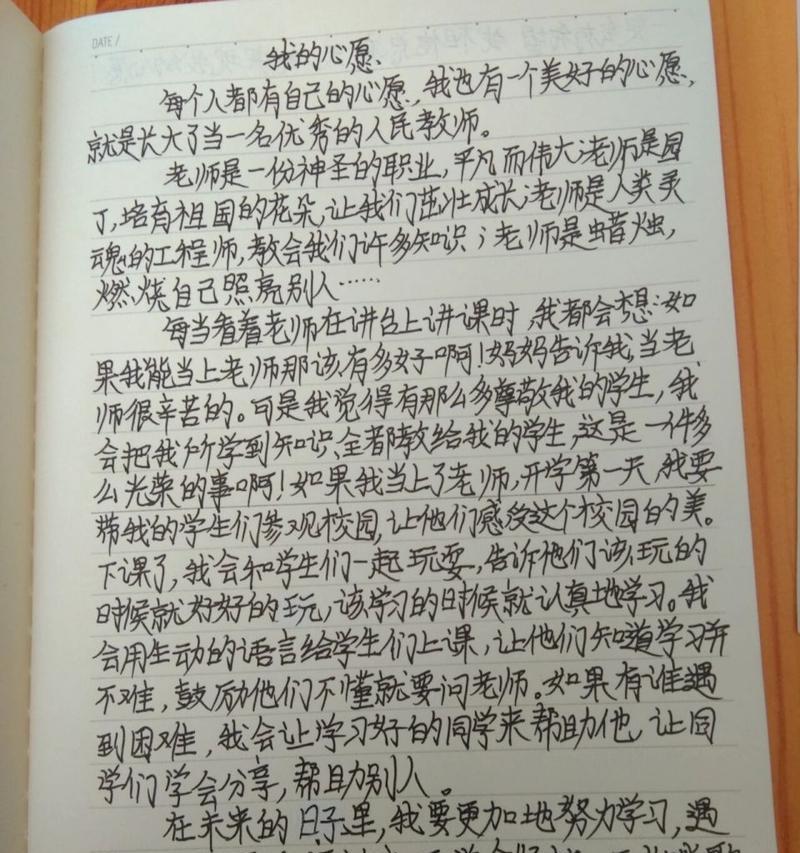 DATE /
我的心愿
每个人都有自己的心愿,我也有一个美好的心愿,
就是长大了当一名优秀的人民教师。
老师是一份神圣的职业,平凡而伟大;老师是园
丁,培育祖国的花朵,让我们茁壮成长;老师是人类灵
魂的工程师,教会我们许多知识;老师是蜡烛,
燃烧自己照亮别人……
每当看着老师在讲台上讲课时,我都会想:如
果我能当上老师那该有多好啊!妈妈告诉我,当老
师很辛苦的。可是我觉得有那么多尊敬我的学生,我
会把我所学到知识,全都教给我的学生,这是一件多
么光荣的事啊!如果我当上了老师,开学第一天,我要
带我的学生们参观校园,让他们感受这个校园的美。
下课了,我会和学生们一起玩耍,告诉他们该玩的
时候就好好的玩,该学习的时候就认真地学习。我
会用生动的语言给学生们上课,让他们知道学习并
不难,鼓励他们不懂就要问老师。如果有谁遇
到困难,我会让学习好的同学来帮助他,让同
学们学会分享,帮助别人。
在未来的日子里,我要更加地努力学习,遇